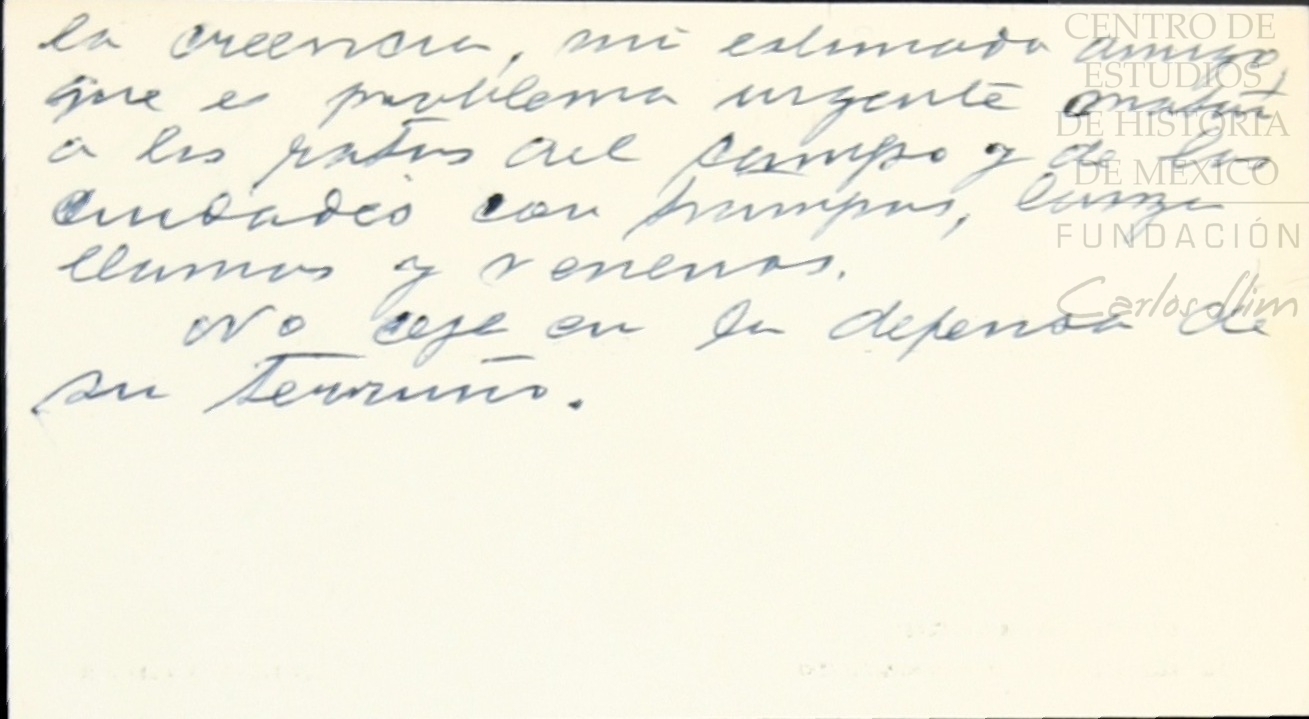 la creencia, mi estimado amigo,
que es problema urgente matar
a las ratas del campo y de las
ciudades con trampas, lanza
llamas y venenos.
No ceje en la defensa de
su terruño.
CENTRO DE
ESTUDIOS
DE HISTORIA
DE MEXICO
FUNDACIÓN
Carlos Slim